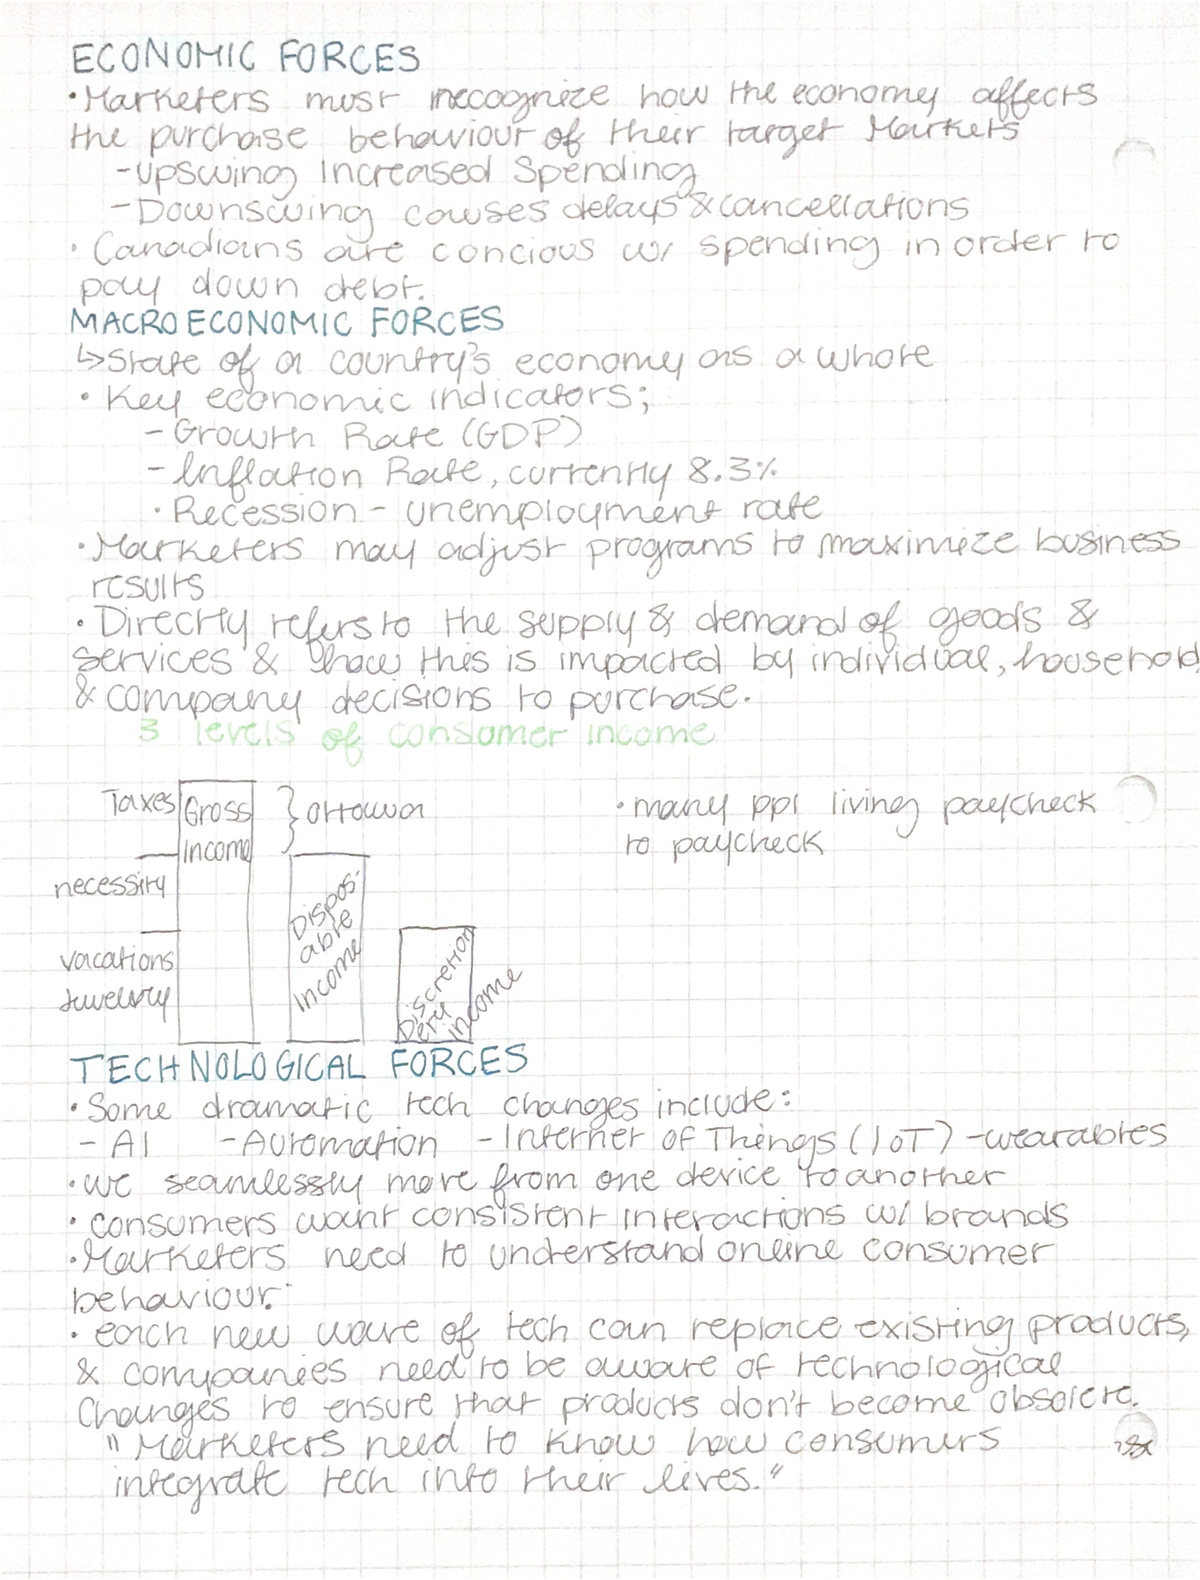 ECONOMIC FORCES
•Marketers must recognize how the economy affects
the purchase behaviour of their target Markets
-Upswing Increased Spending
-Downswing causes delays & cancellations
• Canadians are concious w/ spending in order to
pay down debt.
MACROECONOMIC FORCES
↳State of a country's economy as a whole
• Key economic indicators;
- Growth Rate (GDP)
- Inflation Rate, currently 8.3%
• Recession - unemployment rate
•Marketers may adjust programs to maximize business
results
• Directly refers to the supply & demand of goods &
services & how this is impacted by individual, household
& company decisions to purchase.
3 levels of consumer income
Taxes Gross } Ottawa •many ppl living paycheck
Income to paycheck
necessity
Dispos-
able
Income
vacations
Juwelery
Discretion
ery
income
TECHNOLOGICAL FORCES
• Some dramatic tech changes include:
- AI - Automation - Internet of Things (IoT) -wearables
•we seamlessly move from one device to another
• consumers want consistent interactions w/ brands
•Marketers need to understand online consumer
behaviour.
• each new wave of tech can replace existing products,
& companies need to be aware of technological
Changes to ensure that products don't become obsolete.
"Marketers need to know how consumers
integrate tech into their lives."